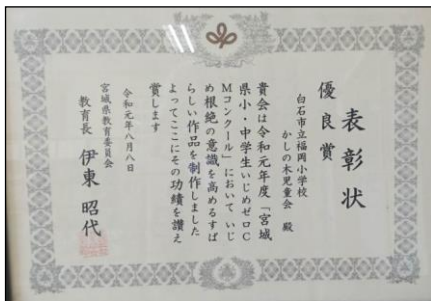 表彰状
優良賞
白石市立福岡小学校
かしの木児童会 殿
貴会は令和元年度「宮城
県小・中学生いじめゼロC
Mコンクール」において いじ
め根絶の意識を高めるすば
らしい作品を制作しました
よってここにその功績を讃え
賞します
令和元年八月八日
宮城県教育委員会
教育長 伊東 昭代